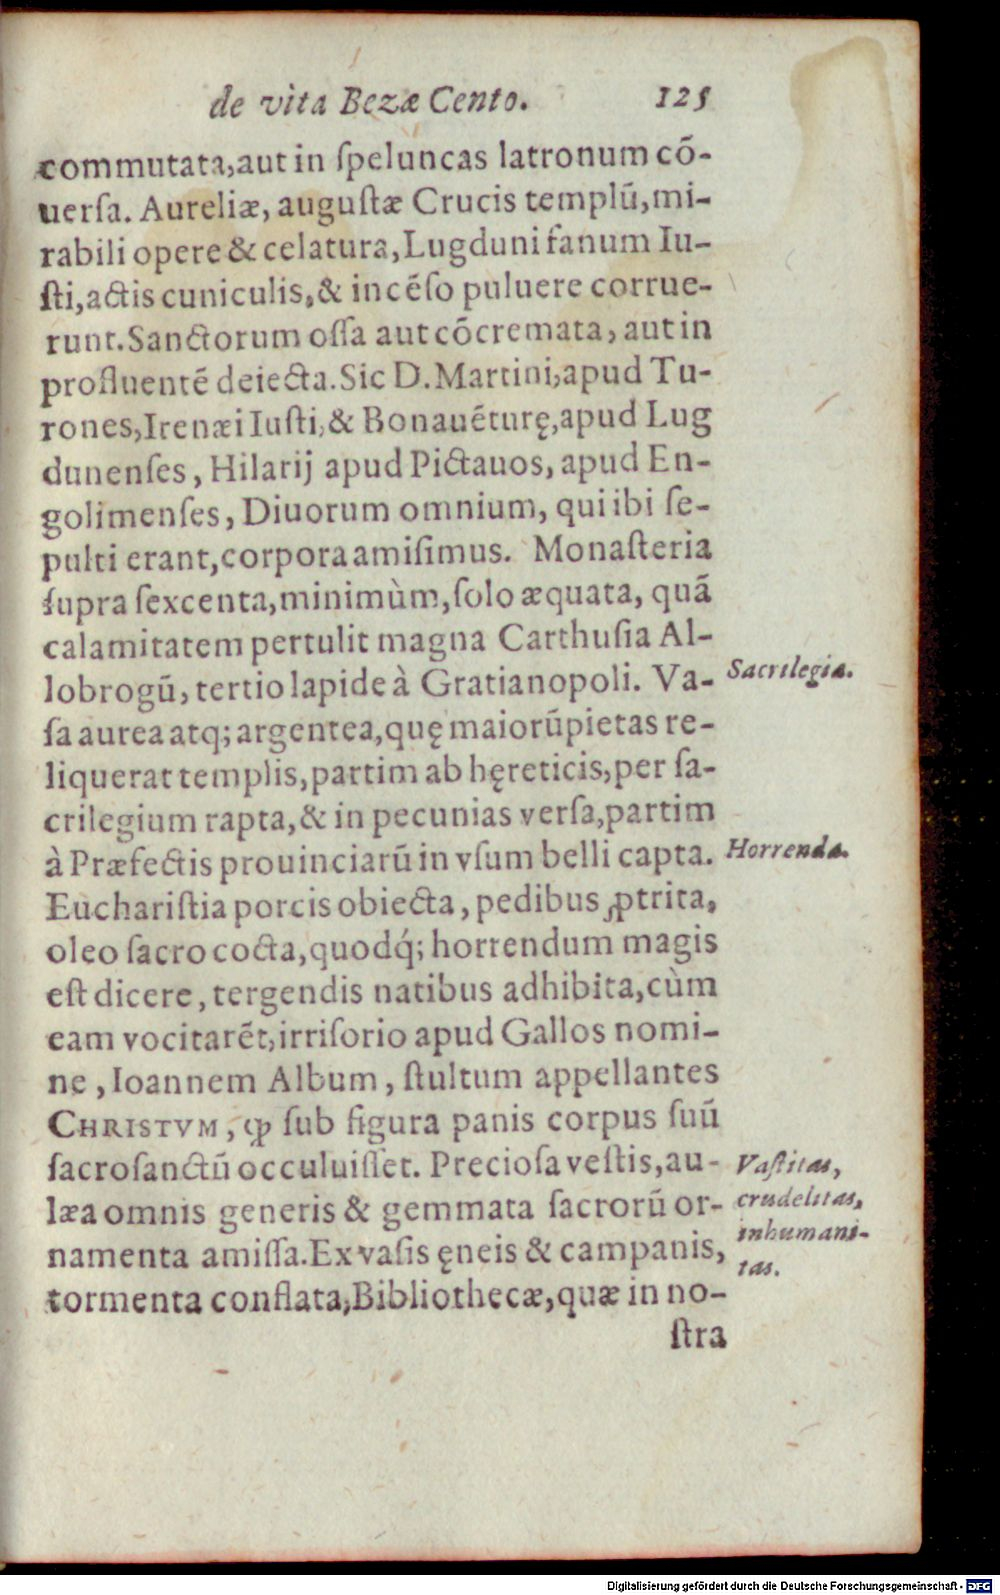 de vita Bezæ Cento. 125
commutata, aut in ſpeluncas latronum cõ-
uerſa. Aureliæ, auguſtæ Crucis templũ, mi-
rabili opere & celatura, Lugduni fanum Iu-
ſti, actis cuniculis, & incẽſo puluere corrue-
runt. Sanctorum oſſa aut cõcremata, aut in
profluentẽ deiecta. Sic D. Martini, apud Tu-
rones, Irenæi Iuſti, & Bonauẽturę, apud Lug
dunenſes, Hilarij apud Pictauos, apud En-
golimenſes, Diuorum omnium, qui ibi ſe-
pulti erant, corpora amiſimus. Monaſteria
ſupra ſexcenta, minimùm, ſolo æquata, quã
calamitatem pertulit magna Carthuſia Al-
lobrogũ, tertio lapide à Gratianopoli. Va-
Sacrilegia.
ſa aurea atq; argentea, quę maiorũ pietas re-
liquerat templis, partim ab hęreticis, per ſa-
crilegium rapta, & in pecunias verſa, partim
à Præfectis prouinciarũ in vſum belli capta.
Horrenda.
Euchariſtia porcis obiecta, pedibus ꝓtrita,
oleo ſacro cocta, quodq́; horrendum magis
eſt dicere, tergendis natibus adhibita, cùm
eam vocitarẽt, irriſorio apud Gallos nomi-
ne, Ioannem Album, ſtultum appellantes
CHRISTVM, ꝙ ſub figura panis corpus ſuũ
ſacroſanctũ occuluiſſet. Precioſa veſtis, au-
Vaſtitas,
læa omnis generis & gemmata ſacrorũ or-
crudelitas,
namenta amiſſa. Ex vaſis ęneis & campanis,
inhumani-
tas.
tormenta conflata, Bibliothecæ, quæ in no-
ſtra
Digitalisierung gefördert durch die Deutsche Forschungsgemeinschaft - DFG